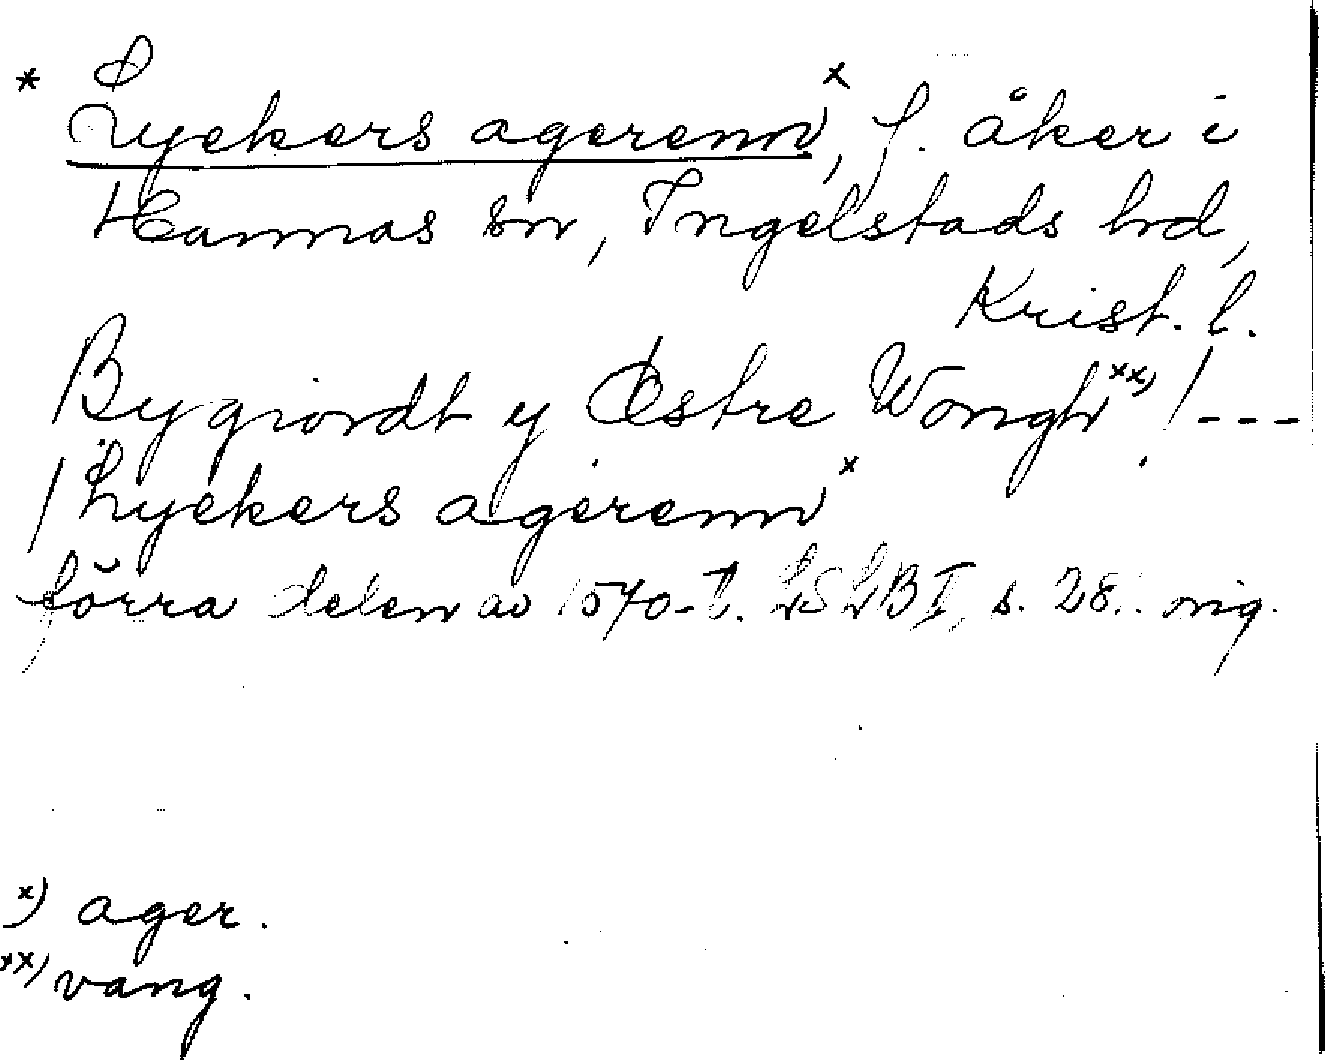 * Lyekers agerenn x, f. åker i
Hannas sn, Ingelstads hd,
Krist. l.
By giordt y Østre Wongh xx) / - - -
/ Lyekers agerenn x
förra delen av 1570-t. LSLB I, s. 28. orig.
x) ager.
xx) vang.